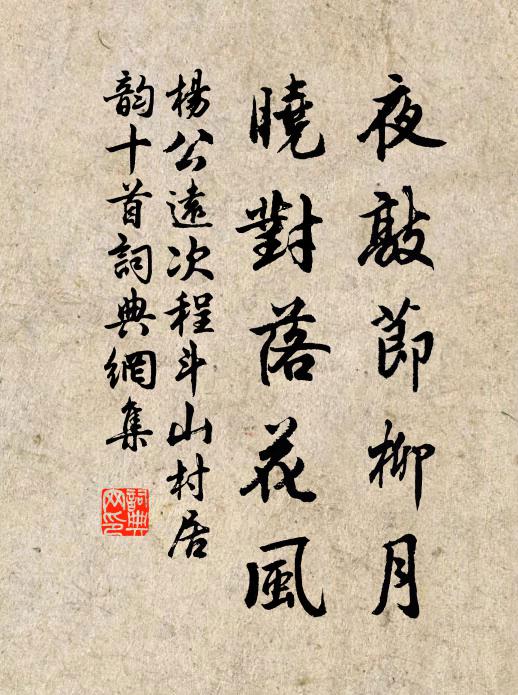 夜敲節柳月
曉對落花風
楊公遠次程斗山村居
韵十首詞典網集
詞典
网印